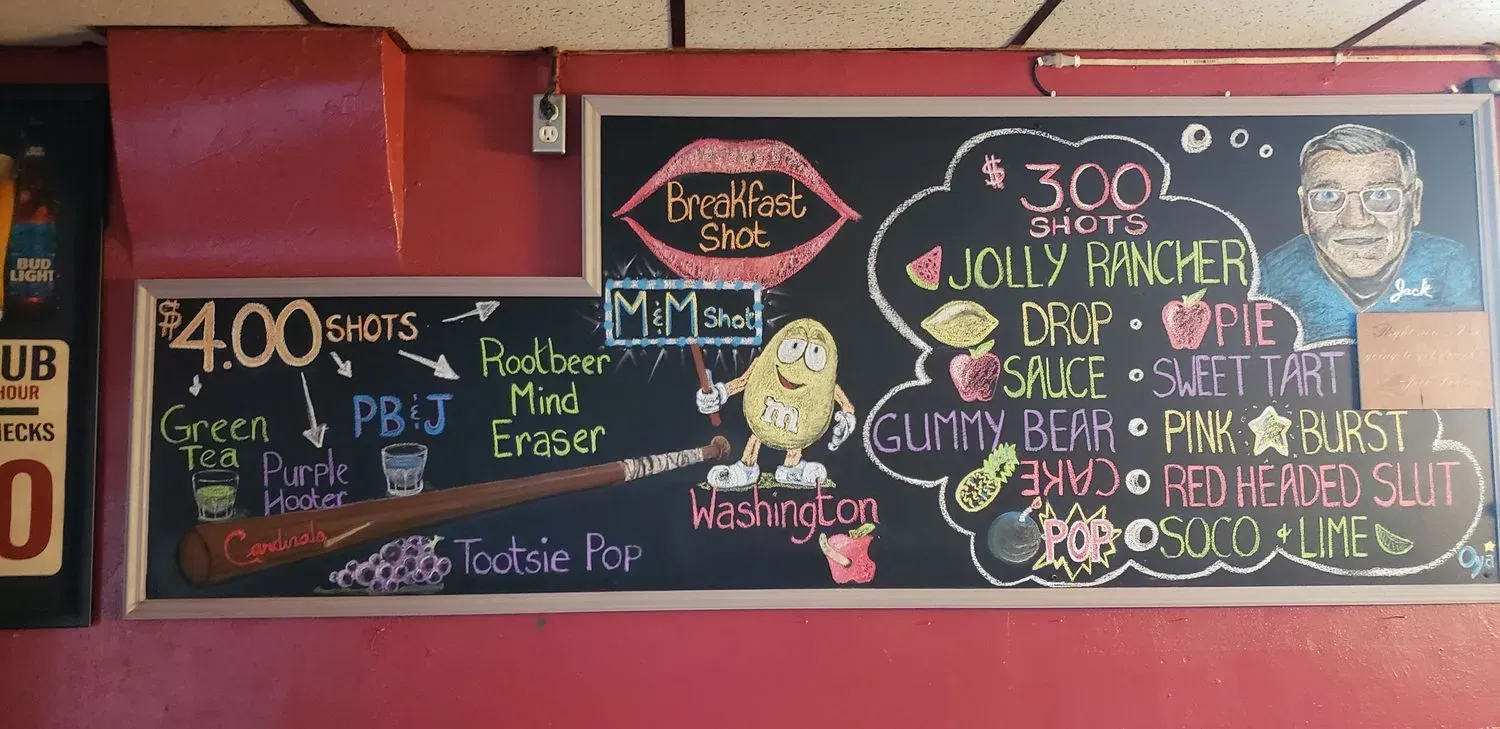 BUD
LIGHT
UB
HOUR
HECKS
0
$4.00 SHOTS
Green
Tea
Purple
Hooter
PB&J
Rootbeer
Mind
Eraser
Cardinals
Tootsie Pop
Breakfast
Shot
M&M Shot
m
Washington
$3.00
SHOTS
JOLLY RANCHER
DROP
PIE
SAUCE
SWEET TART
GUMMY BEAR
PINK BURST
CAKE
RED HEADED SLUT
POP
SOCO & LIME
Jack
Oya